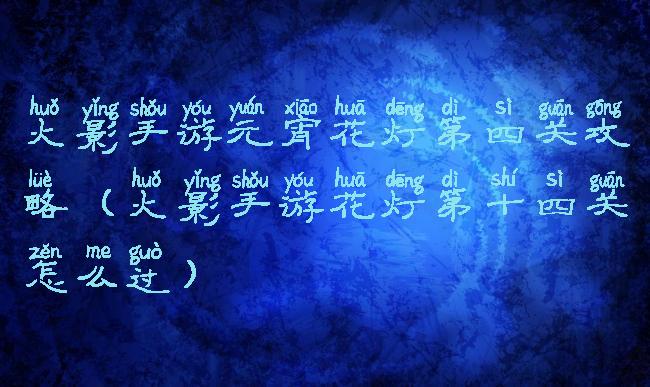 huǒ yǐng shǒu yóu yuán xiāo huā dēng dì sì guān gōng
火影手游元宵花灯第四关攻
lüè huǒ yǐng shǒu yóu huā dēng dì shí sì guān
略（火影手游花灯第十四关
zěn me guò
怎么过）